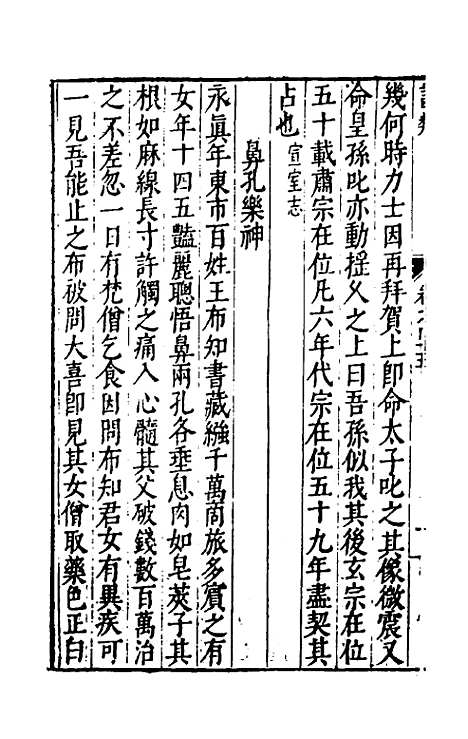 幾何時力士因再拜賀上卽命太子叱之其像微震又
命皇孫叱亦動揺乆之上曰吾孫似我其後玄宗在位
五十載肅宗在位凡六年代宗在位五十九年盡契其
占也宣室志
鼻孔樂神
永眞年東市百姓王布知書藏繦千萬商旅多賔之有
女年十四五豔麗聰悟鼻兩孔各垂息肉如皂莢子其
根如麻線長寸許觸之痛入心髓其父破錢數百萬治
之不差忽一日有梵僧乞食因問布知君女有異疾可
一見吾能止之布被問大喜卽見其女僧取藥色正白